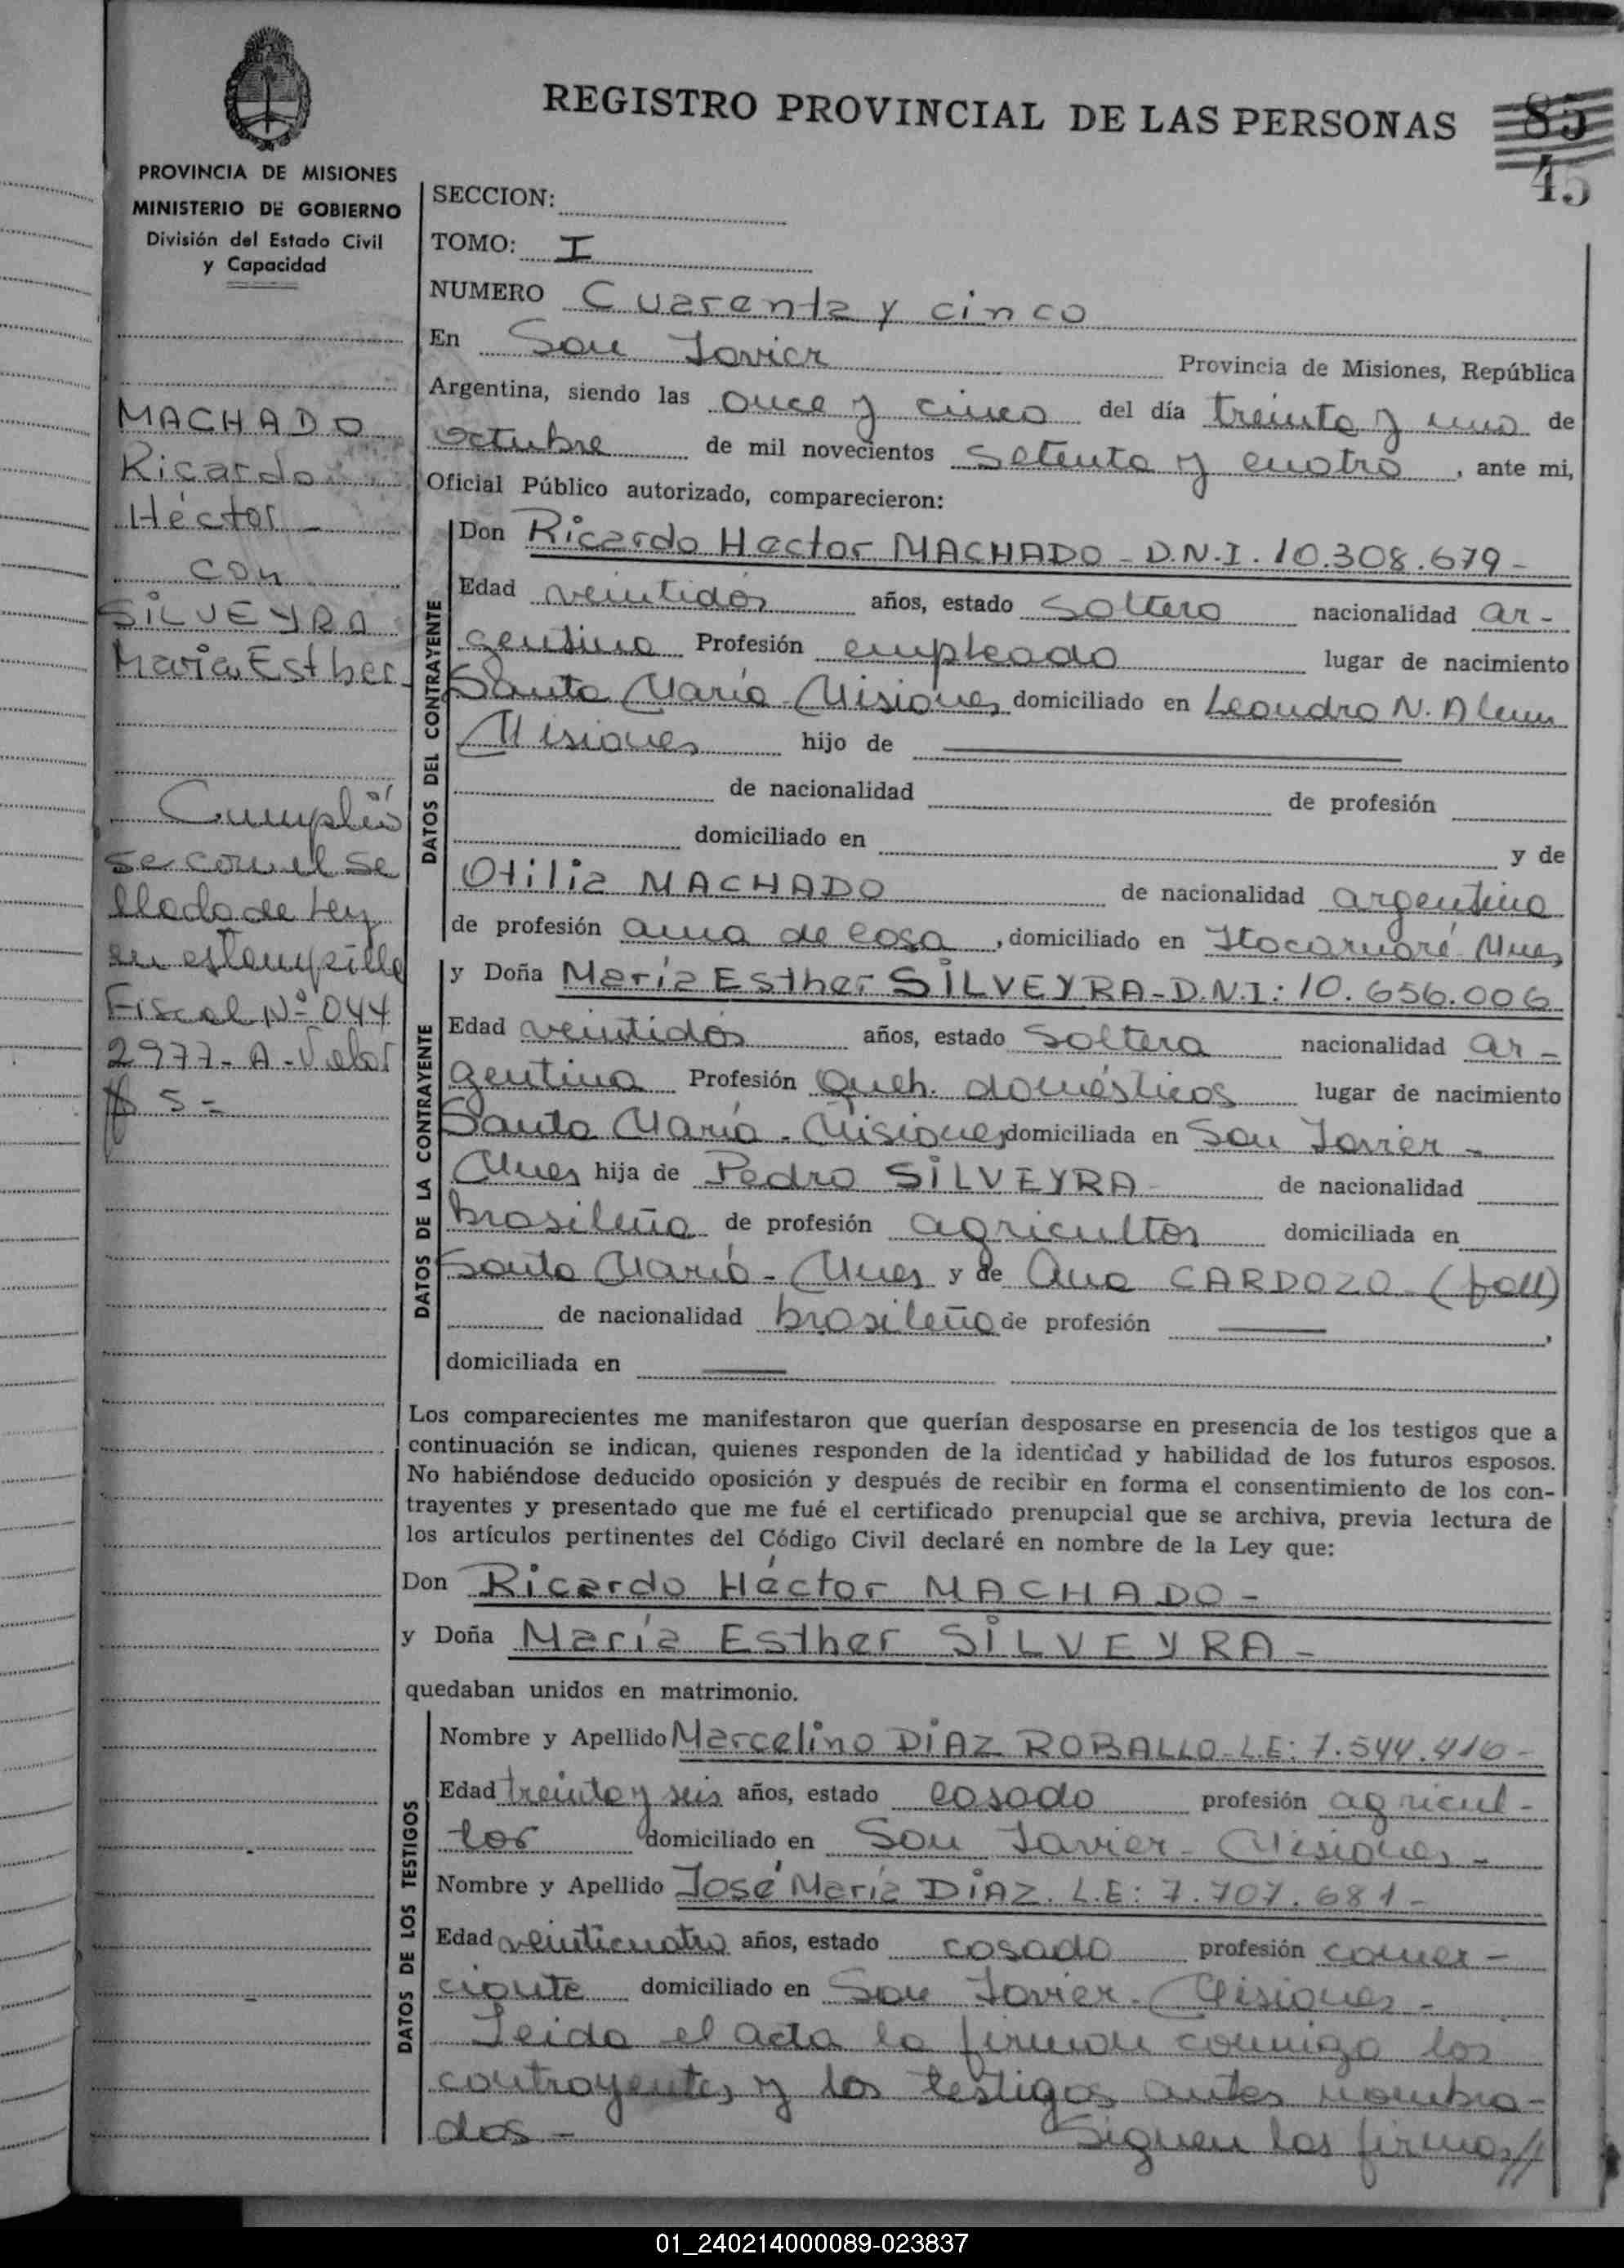 REGISTRO PROVINCIAL DE LAS PERSONAS
85
45
PROVINCIA DE MISIONES
MINISTERIO DE GOBIERNO
División del Estado Civil
y Capacidad
MACHADO
Ricardo
Héctor -
con
SILVEYRA
María Esther
Cumplió
se con el se
llado de Ley
en estampilla
Fiscal Nº 044
2977 - A - Valor
$ 5 =
SECCION:
TOMO: I
NUMERO Cuarenta y cinco
En San Javier Provincia de Misiones, República
Argentina, siendo las once y cinco del día treinta y uno de
octubre de mil novecientos setenta y cuatro, ante mi,
Oficial Público autorizado, comparecieron:
DATOS DEL CONTRAYENTE
Don Ricardo Hector MACHADO - D.N.I. 10.308.679 -
Edad veintidós años, estado soltero nacionalidad ar-
gentina Profesión empleado lugar de nacimiento
Santa María - Misiones domiciliado en Leandro N. Alem
Misiones hijo de
de nacionalidad de profesión
domiciliado en y de
Otilia MACHADO de nacionalidad argentina
de profesión ama de casa, domiciliado en Itacaruaré - Mnes
DATOS DE LA CONTRAYENTE
y Doña María Esther SILVEYRA - D.N.I: 10.656.006
Edad veintidós años, estado soltera nacionalidad ar-
gentina Profesión Queh. domésticos lugar de nacimiento
Santa María - Misiones domiciliada en San Javier -
Mnes hija de Pedro SILVEYRA - de nacionalidad
brasileña de profesión agricultor domiciliada en
Santa María - Mnes y de Ana CARDOZO (fall)
de nacionalidad brasileña de profesión ,
domiciliada en
Los comparecientes me manifestaron que querían desposarse en presencia de los testigos que a
continuación se indican, quienes responden de la identidad y habilidad de los futuros esposos.
No habiéndose deducido oposición y después de recibir en forma el consentimiento de los con-
trayentes y presentado que me fué el certificado prenupcial que se archiva, previa lectura de
los artículos pertinentes del Código Civil declaré en nombre de la Ley que:
Don Ricardo Héctor MACHADO -
y Doña María Esther SILVEYRA -
quedaban unidos en matrimonio.
DATOS DE LOS TESTIGOS
Nombre y Apellido Marcelino DIAZ ROBALLO - L.E: 7.544.410 -
Edad treinta y seis años, estado casado profesión agricul-
tor domiciliado en San Javier - Misiones -
Nombre y Apellido José María DIAZ. L.E: 7.707.681 -
Edad veinticuatro años, estado casado profesión comer-
ciante domiciliado en San Javier - Misiones -
Leida el acta la firman conmigo los
contrayentes y los testigos antes nombra-
dos - Siguen las firmas//
01_240214000089-023837